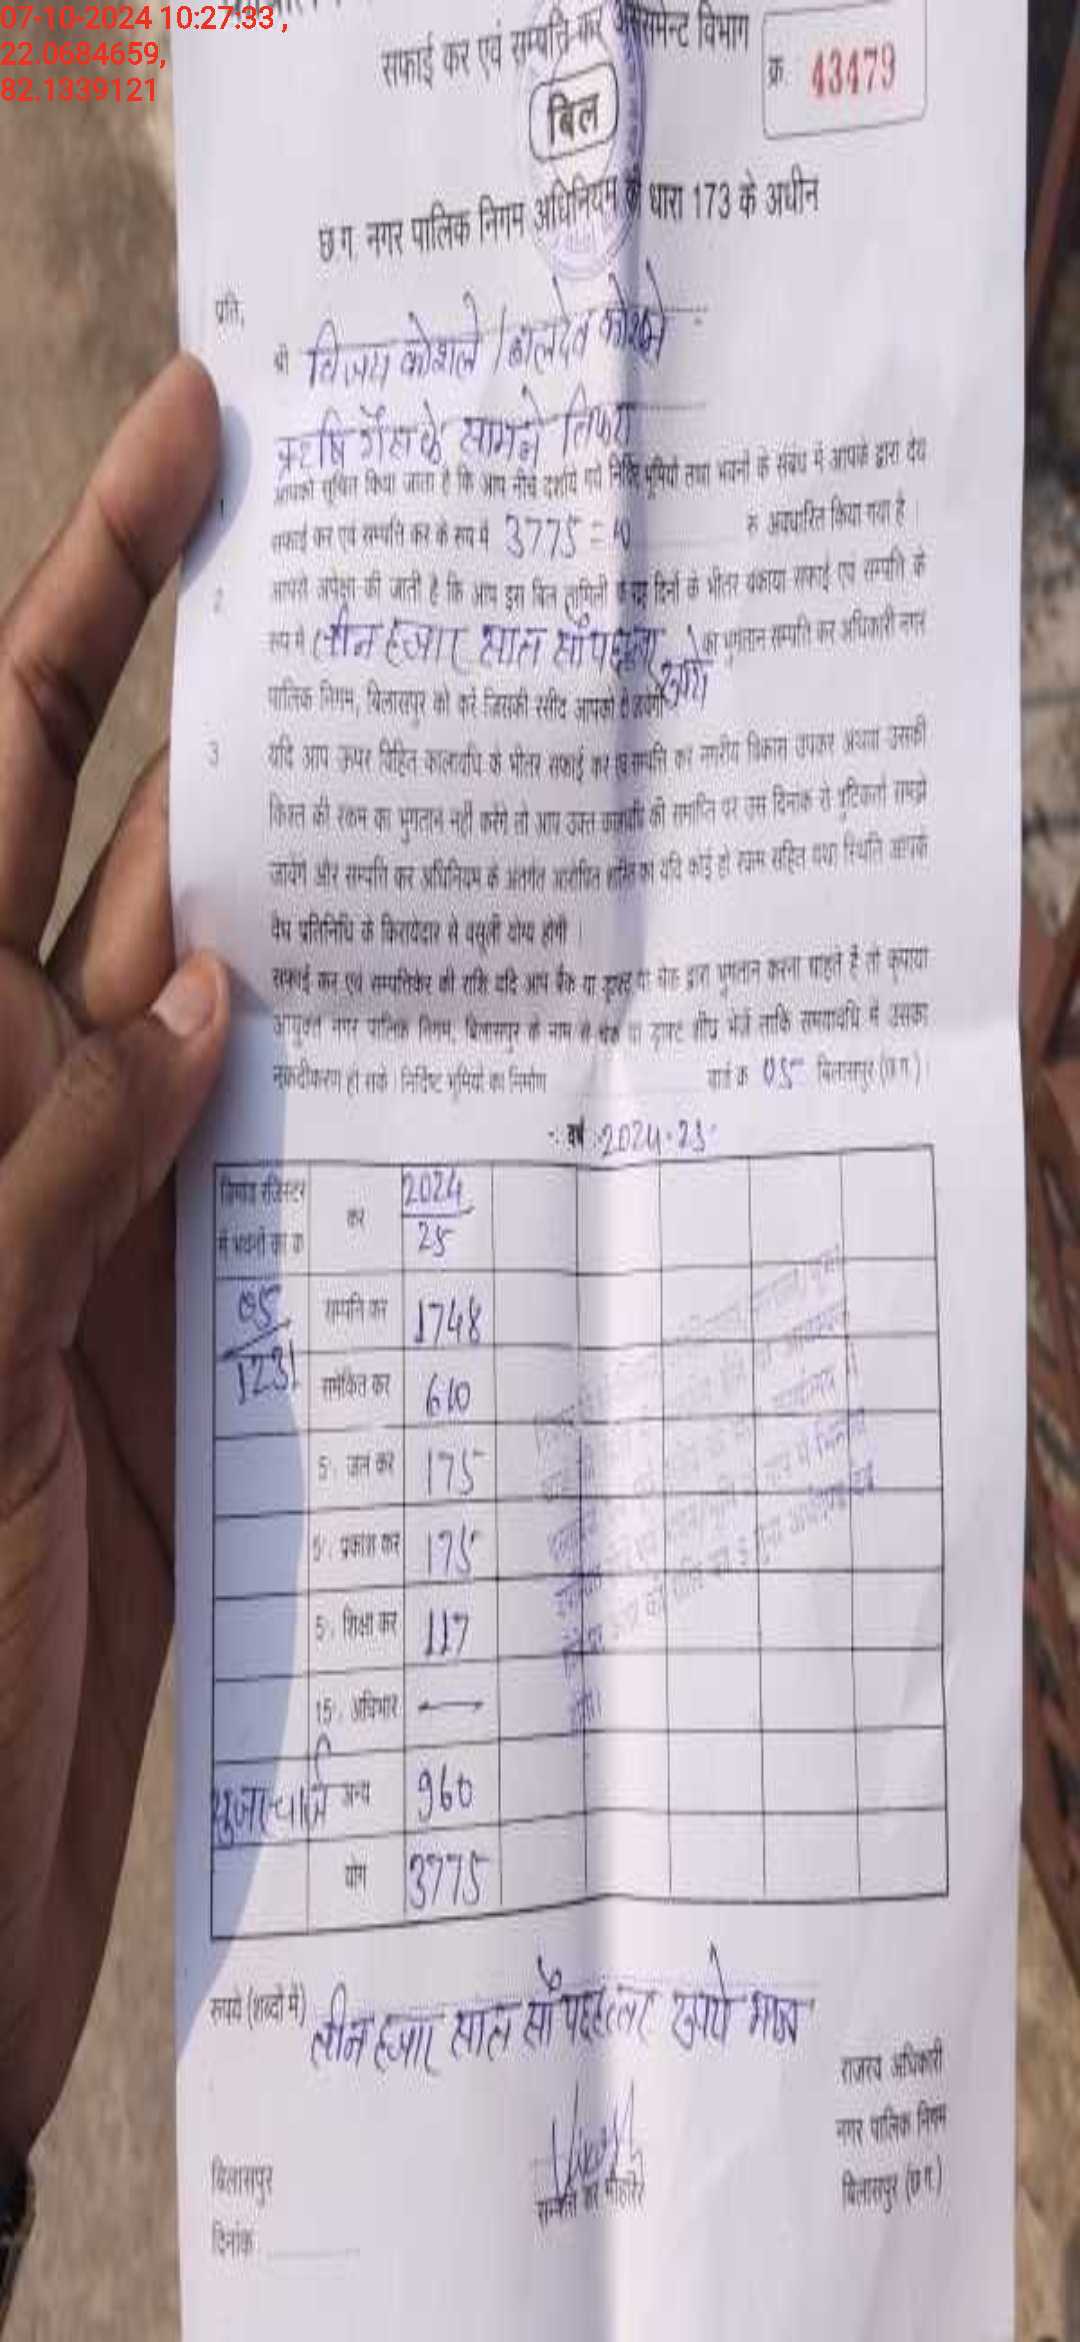 07-10-2024 10:27:33 ,
22.0684659,
82.1339121
सफाई कर एवं सम्पत्ति कर विभाग
क्र. 43479
बिल
छ.ग. नगर पालिक निगम अधिनियम के धारा 173 के अधीन
प्रति,
श्री विजय कोशले / बालदेव कोशले
ऋषि गैस के सामने तिफरा
1 आपको सूचित किया जाता है कि आप नीचे दर्शाये गये निर्दिष्ट भूमियों तथा भवनों के संबंध में आपके द्वारा देय
सफाई कर एवं सम्पत्ति कर के रूप में 3775 = 00 रु अवधारित किया गया है ।
2 आपसे अपेक्षा की जाती है कि आप इस बिल तामिली के दिनों के भीतर बकाया सफाई एवं सम्पत्ति के
रूप में तीन हजार सात सौ पचहत्तर रुपये का भुगतान सम्पत्ति कर अधिकारी नगर
पालिक निगम, बिलासपुर को करें जिसकी रसीद आपको दी जायेगी
3 यदि आप ऊपर विहित कालावधि के भीतर सफाई कर एवं सम्पत्ति कर नगरीय विकास उपकर अथवा उसकी
किश्त की रकम का भुगतान नहीं करेंगे तो आप उक्त कालावधि की समाप्ति पर उस दिनांक से त्रुटिकर्ता समझे
जायेंगे और सम्पत्ति कर अधिनियम के अंतर्गत आरोपित शास्ति को यदि कोई हो रकम सहित यथा स्थिति आपके
वैध प्रतिनिधि के किरायेदार से वसूली योग्य होगी ।
सफाई कर एवं सम्पत्तिकर की राशि यदि आप बैंक या ड्राफ्ट या चेक द्वारा भुगतान करना चाहते हैं तो कृपया
आयुक्त नगर पालिक निगम, बिलासपुर के नाम से चेक या ड्राफ्ट शीघ्र भेजें ताकि समयावधि में उसका
नकदीकरण हो सके । निर्दिष्ट भूमियों का निर्माण वार्ड क्र 05 बिलासपुर (छ.ग.) ।
वर्ष 2024-25
डिमांड रजिस्टर में भवनों का क्र कर 2024/25
05/1231 सम्पत्ति कर 1748
समेकित कर 600
5% जल कर 175
5% प्रकाश कर 175
5% शिक्षा कर 117
15% अधिभार —
यूजर चार्ज अन्य 960
योग 3775
रूपये (शब्दों में) तीन हजार सात सौ पचहत्तर रुपये मात्र
राजस्व अधिकारी
नगर पालिक निगम
बिलासपुर (छ.ग.)
बिलासपुर
सम्पत्ति कर मोहर्रिर
दिनांक